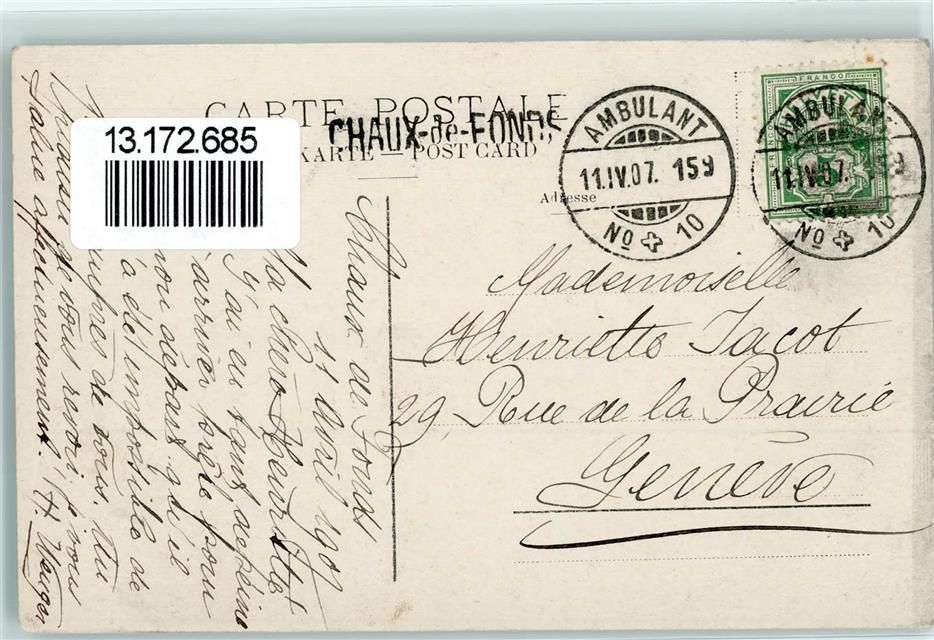 CARTE POSTALE
KARTE — POST CARD
CHAUX-de-FONDS
13.172.685
AMBULANT
11.IV.07. 159
No 10
AMBULANT
11.IV.07. 159
No 10
FRANCO
5
Adresse
Mademoiselle
Henriette Jacot
29, Rue de la Prairie
Genève
Chaux de Fonds
11 Avril 1907
Ma chère Henriette
J'ai eu tant de peine
arriver prête pour
mon départ qu'il
a été impossible de
près de vous.
de vous revoir, je vous
salue affectueusement. H.